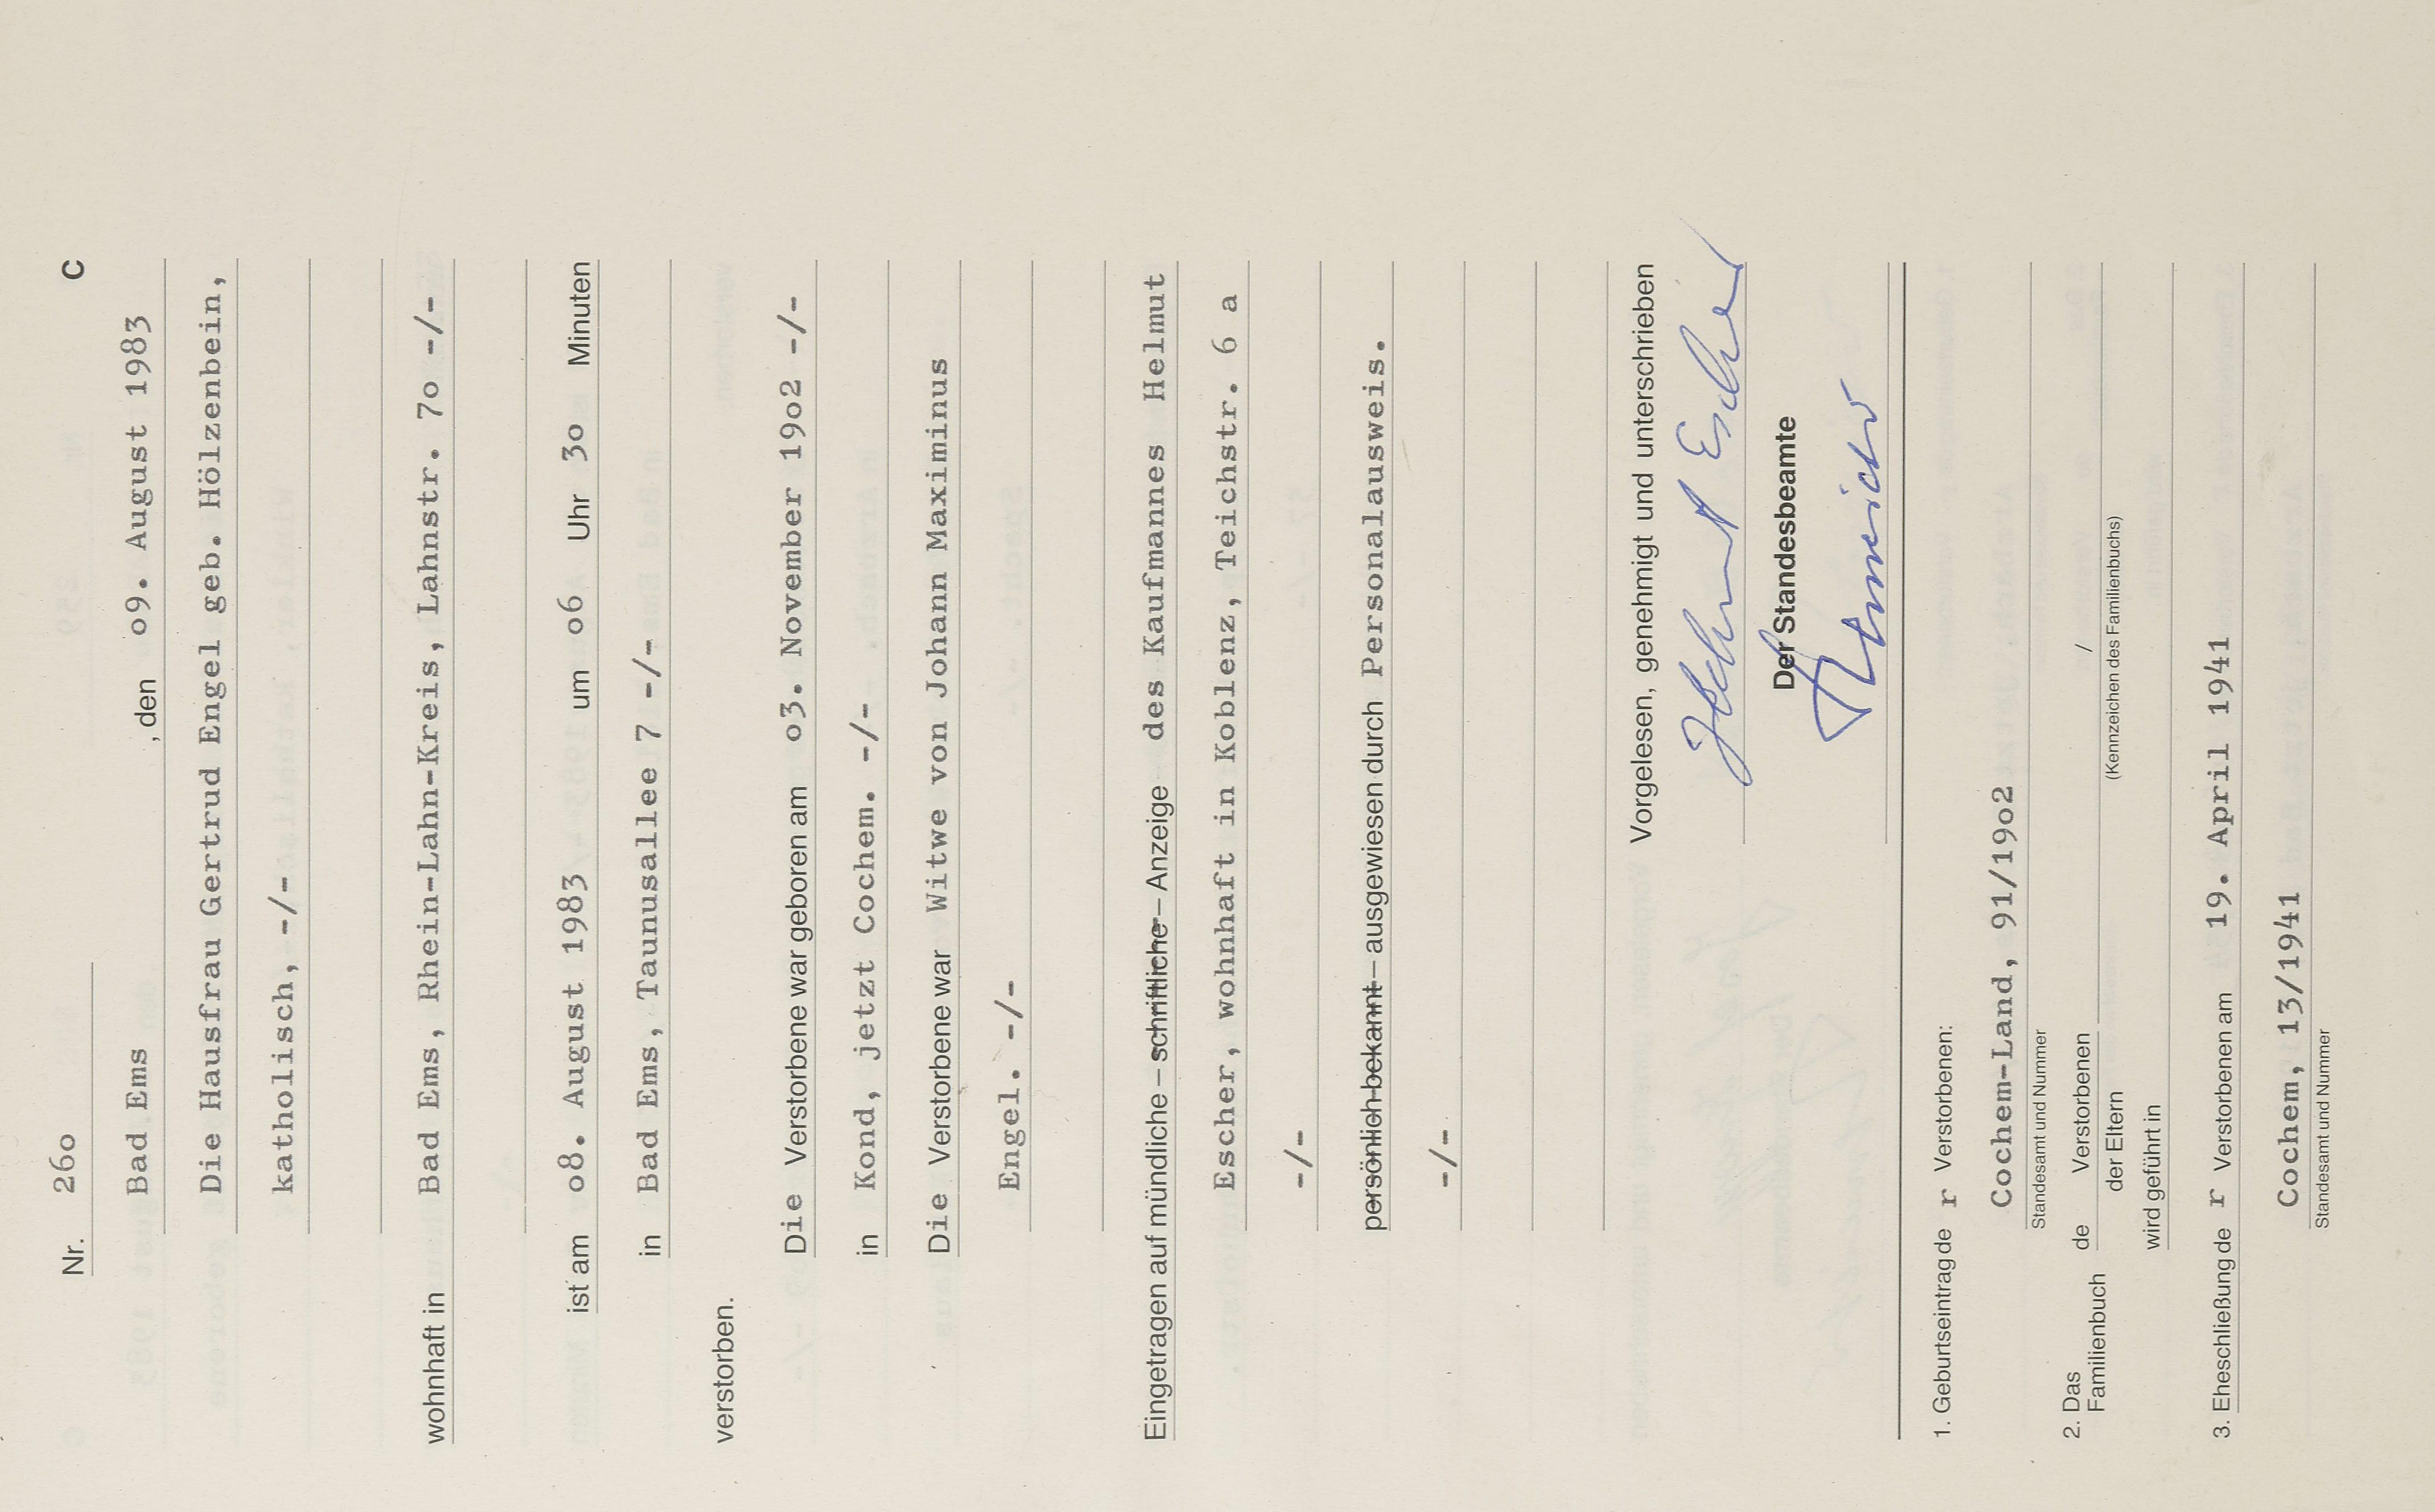 Nr. 26o C
Bad Ems , den o9. August 1983
Die Hausfrau Gertrud Engel geb. Hölzenbein,
katholisch, -/-
wohnhaft in Bad Ems, Rhein-Lahn-Kreis, Lahnstr. 7o -/-
ist am o8. August 1983 um o6 Uhr 3o Minuten
in Bad Ems, Taunusallee 7 -/-
verstorben.
Die Verstorbene war geboren am o3. November 19o2 -/-
in Kond, jetzt Cochem. -/-
Die Verstorbene war Witwe von Johann Maximinus
Engel. -/-
Eingetragen auf mündliche – schriftliche – Anzeige des Kaufmannes Helmut
Escher, wohnhaft in Koblenz, Teichstr. 6 a
-/-
persönlich bekannt – ausgewiesen durch Personalausweis.
-/-
Vorgelesen, genehmigt und unterschrieben
Helmut Escher
Der Standesbeamte
1. Geburtseintrag de r Verstorbenen:
Cochem-Land, 91/19o2
Standesamt und Nummer
2. Das Familienbuch de Verstorbenen /
der Eltern (Kennzeichen des Familienbuchs)
wird geführt in
3. Eheschließung de r Verstorbenen am 19. April 1941
Cochem, 13/1941
Standesamt und Nummer